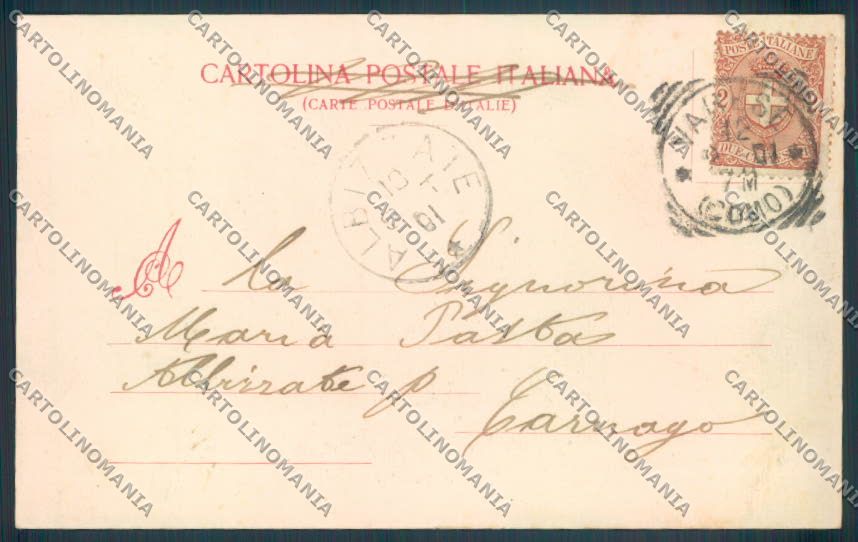 CARTOLINA POSTALE ITALIANA
(CARTE POSTALE D'ITALIE)
POSTE ITALIANE
2
VARESE
12
01
7M
(COMO)
ALBIZZATE
01
A la Signorina
Maria Pasta
Albizzate p
Carnago
CARTOLINOMANIA